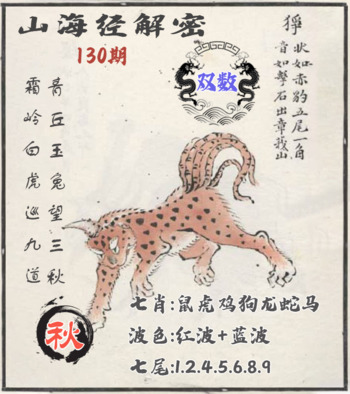 山海经解密
130期
狰
状如赤豹五尾一角
音如击石出章莪山
双数
青丘玉兔望三秋
霜岭白虎巡九道
秋
七肖:鼠虎鸡狗龙蛇马
波色:红波+蓝波
七尾:1.2.4.5.6.8.9